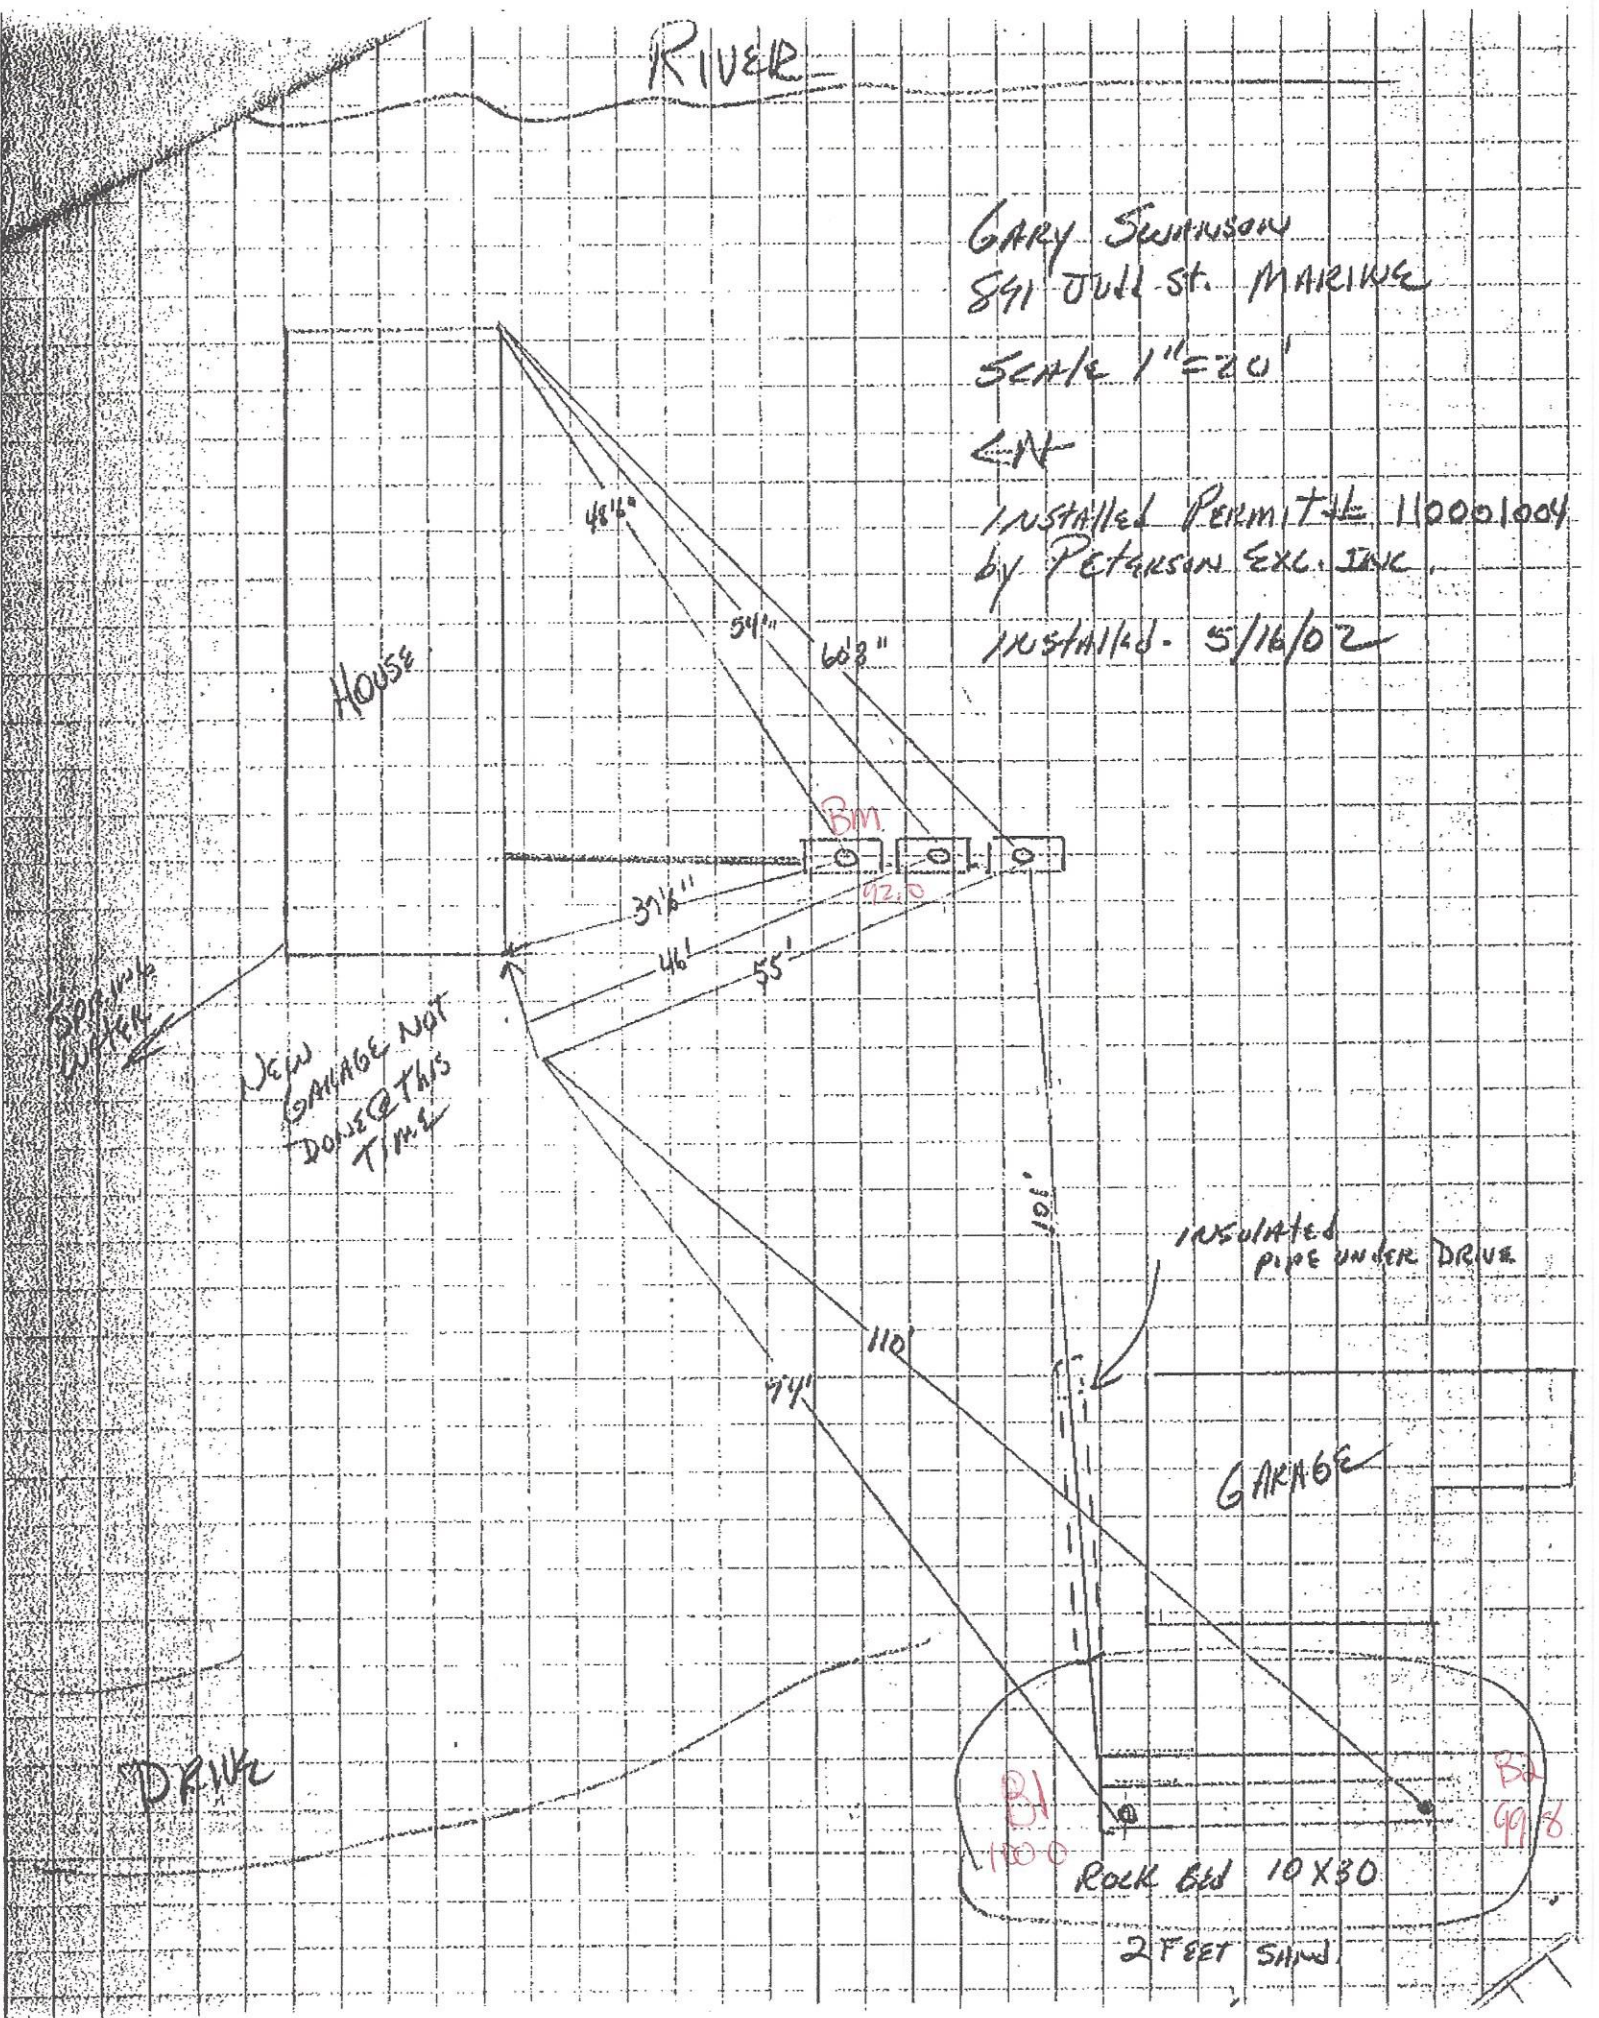 RIVER
GARY SWANSON
891 Judd St. MARINE
SCALE 1"=20'
N
INSTALLED PERMIT# 110001004
by PETERSON EXC. INC.
INSTALLED - 5/16/02
48'6"
54'
60'3"
HOUSE
BM
92.0
37'6"
46'
55'
SPRING
WATER
NEW
GARAGE NOT
DONE @ THIS
TIME
101'
INSULATED
PIPE UNDER DRIVE
110'
94'
GARAGE
DRIVE
B1
100.0
B2
99.8
ROCK BED 10X30
2 FEET SAND.